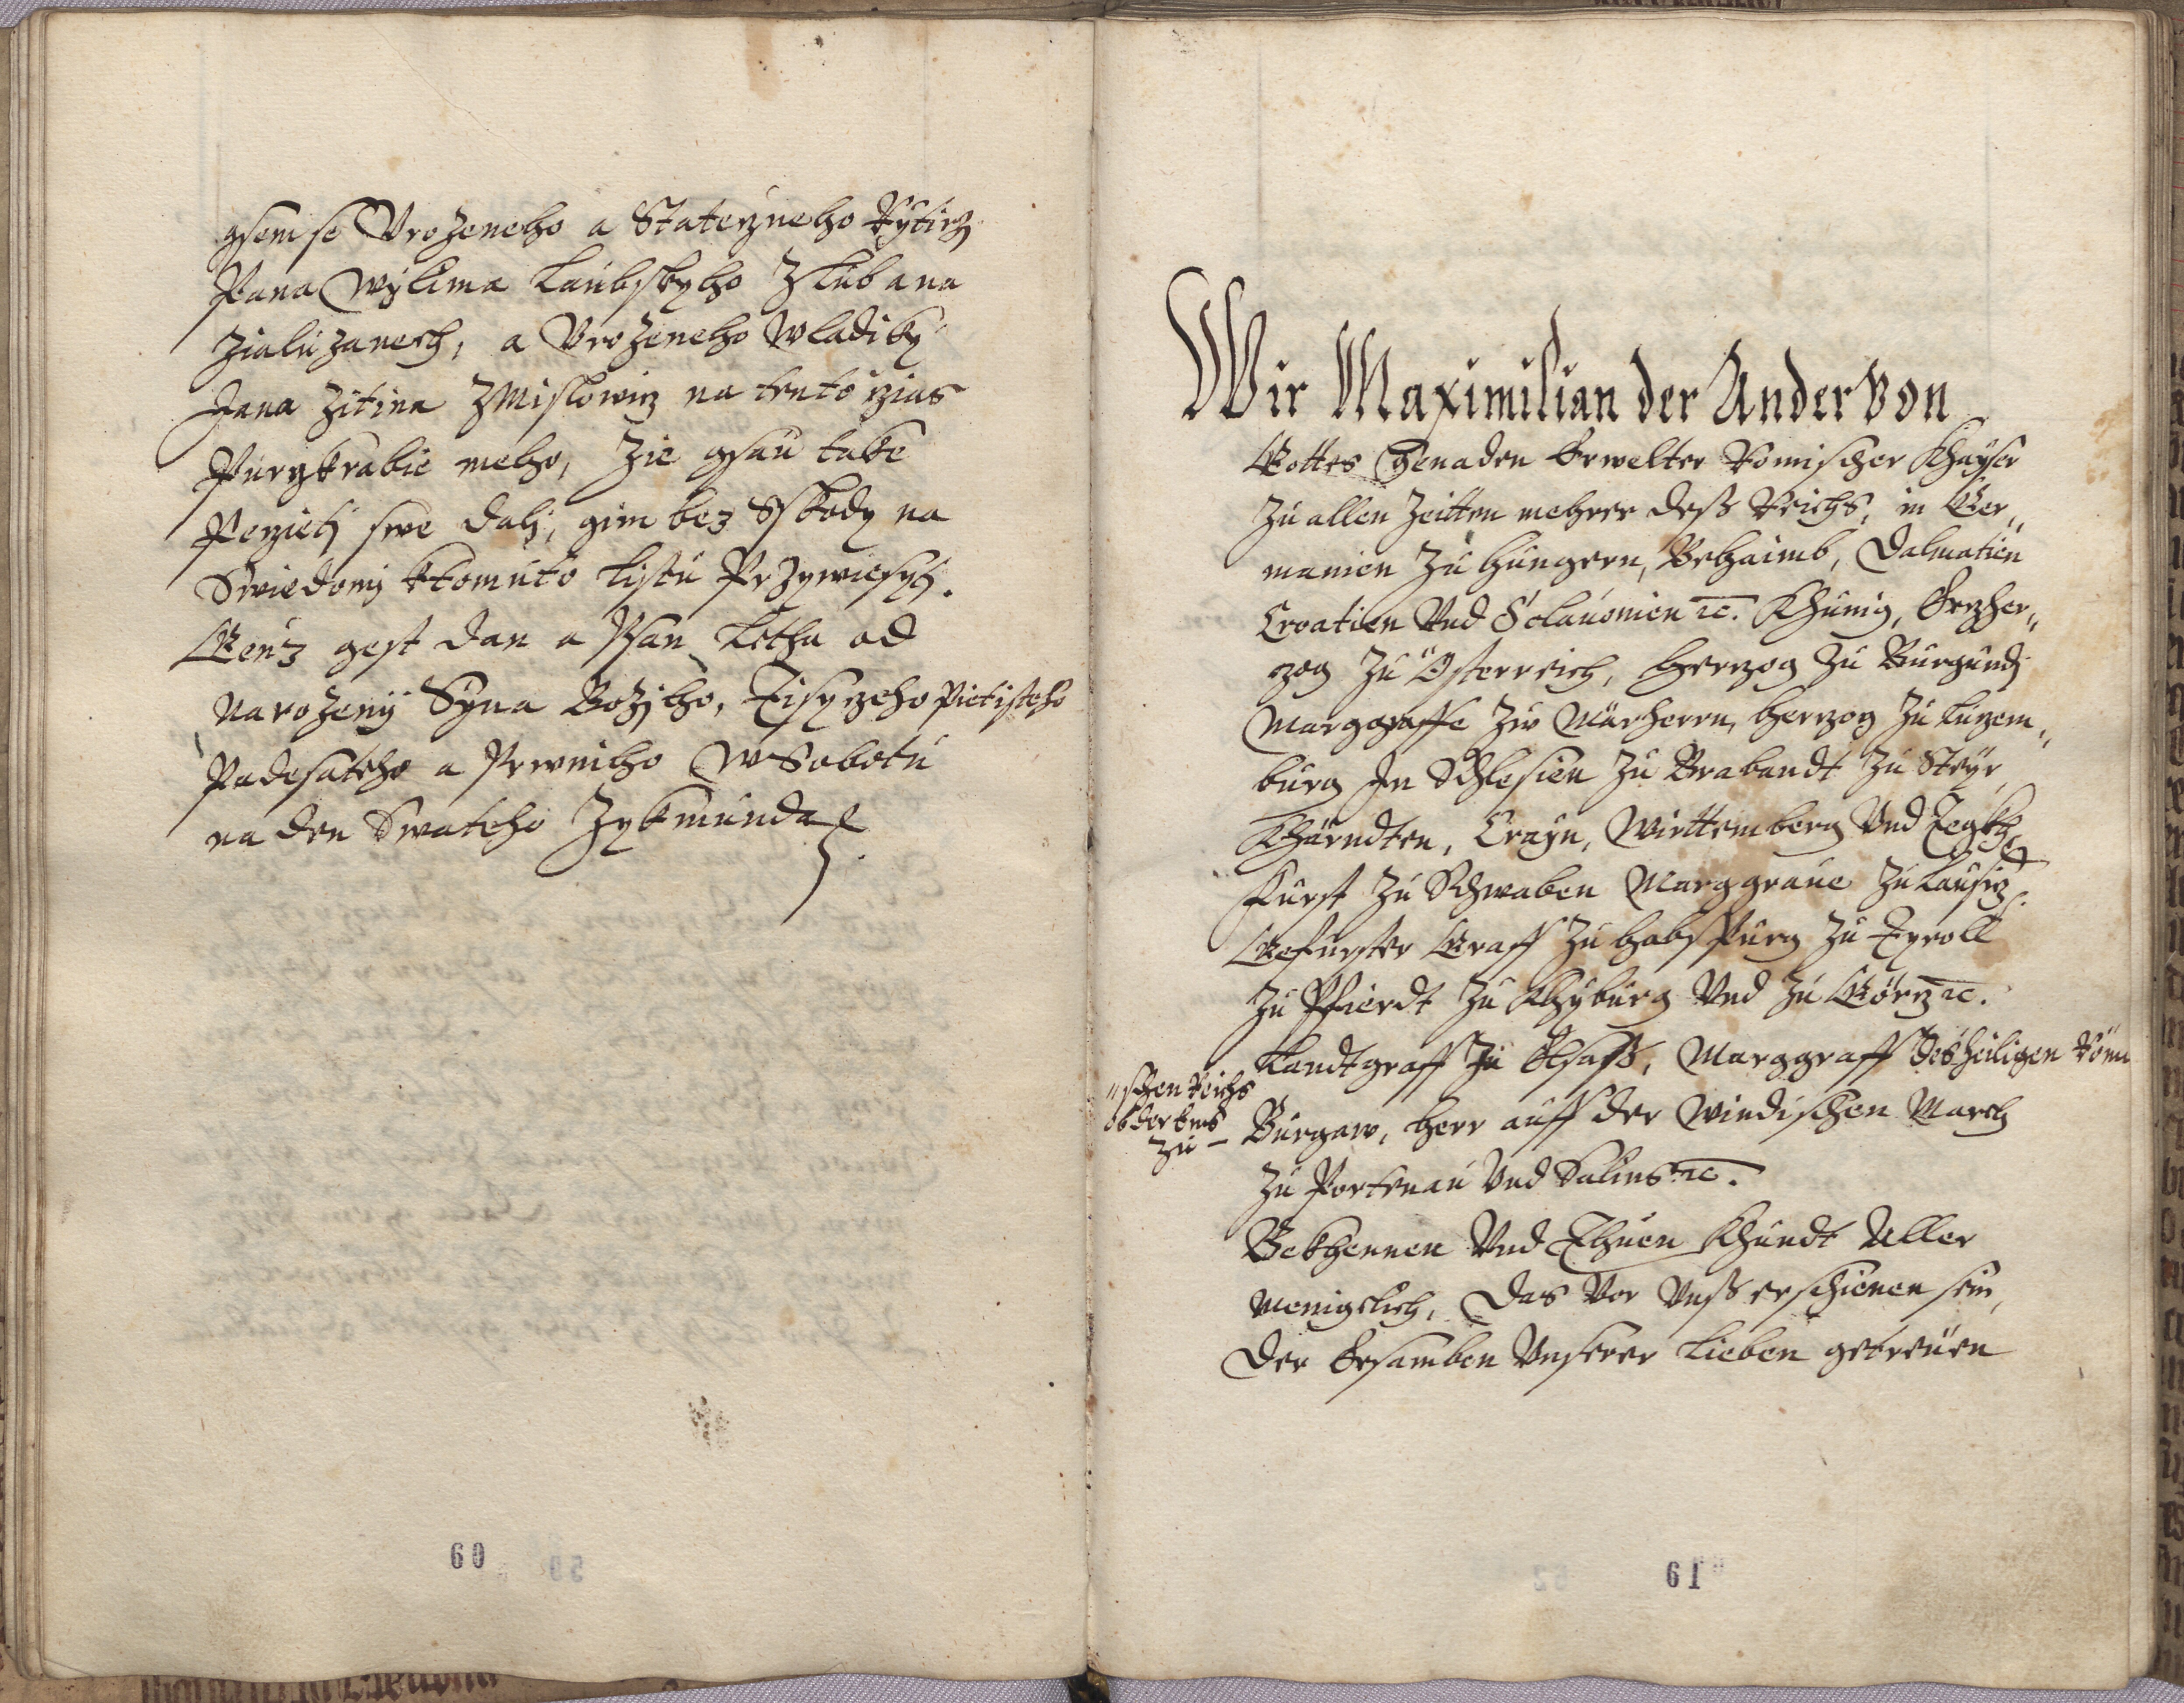 gsem se Vrozeneho a Stateczneho Rytirz
Pana Wylima Laubskyho Z Lub a na
Zialuzanech, a Vrozeneho Wladiky
Jana Zitina Z Mislowicz na tento czias
Purgkrabie meho, Zie gsau take
Peczieti swe dali, gim bez Sskody na
Swiedomi ktomuto Listu Przywiesyti.
Genz gest dan a Psan Letha od
Narozeny Syna Bozjho, Tisyczeho Pietisteho
Padesateho a Prwniho W Sobotu
na den Swateho Zykmunda
60
Wir Maximilian der Ander Von
Gottes Genaden Erwelter Romischer Khayser
Zu allen Zeitten mehrer dess Reichs, in Ger„
manien Zu Hungern, Behaimb, Dalmatien
Croatien Vnd Sclauonien etc. Khunig, Erzher„
zog Zu Österreich, Herzog Zu Burgundj
Marggraffe Zw Märhern, Herzog Zu Luzem„
burg In Schlesien Zu Brabandt Zu Steÿr
Khärndten, Crayn, Wirttemberg Vnd Tegkh
Furst Zu Schwaben Marggraue Zu Lausiz
Gefurster Graff Zu Habspurg Zu Tyroll
Zu Pfierdt Zu Khyburg Vnd Zu Görz etc.
Landtgraff Zu Elsass, Marggraff des heiligen Römi
„schen Reichs
ob der Enns
Zu – Burgaw, Herr auff der Windischen March
Zu Portenau Vnd Salins etc.
Bekhennen Vnd Thuen Khundt Aller
Menigclich, Das Vor Vnss erschienen sein,
Der Ersamben Vnserer Lieben getreuen
61